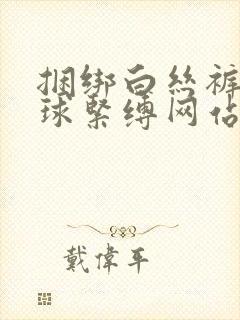 捆绑白丝裤
球紧缚网站
戴偉平